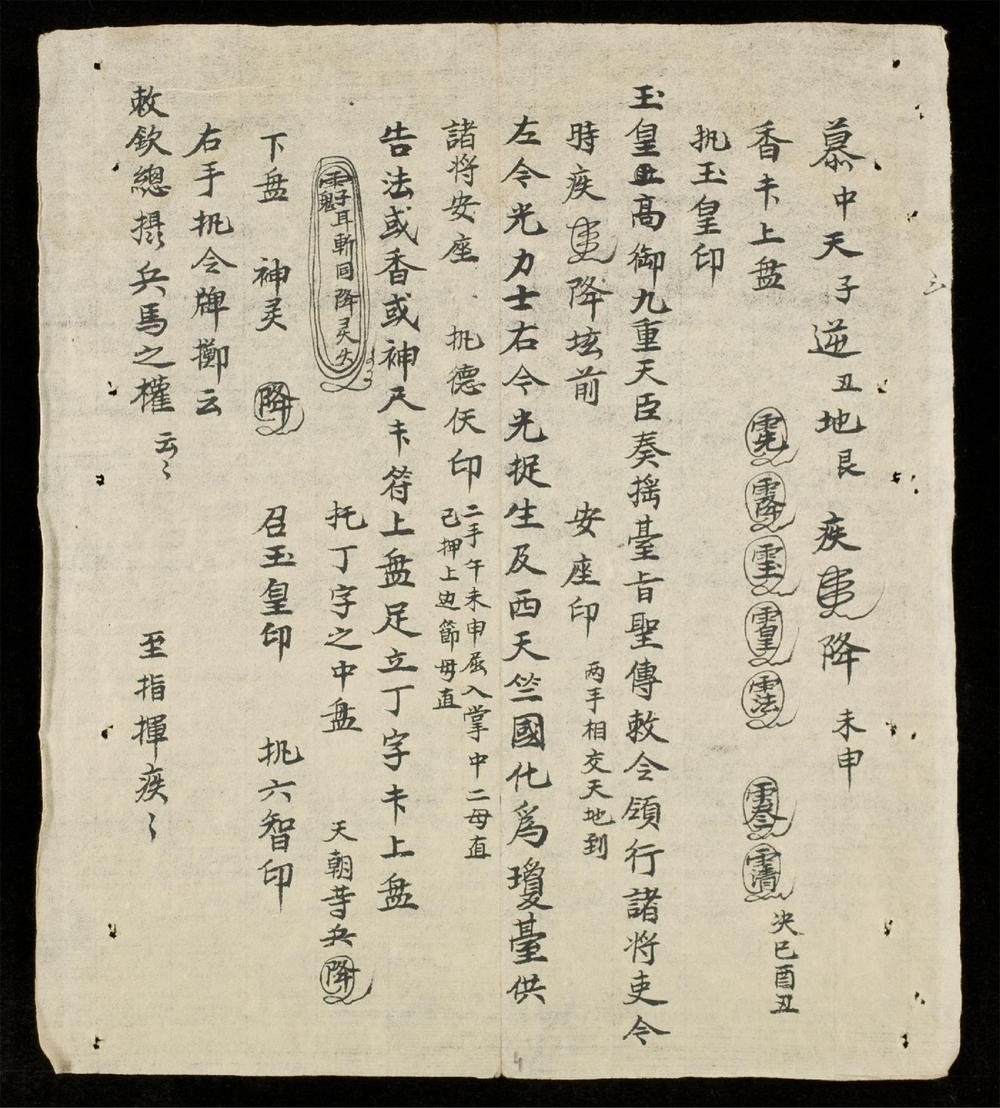 慕中天子逆丑地艮 疾 降 未申
香卡上盘 決巳酉丑
执玉皇印
玉皇 高御九重天臣奏摇臺旨聖傳敕令領行諸將吏令
時疾 降垓前 安座印 两手相交天地到
左令光力士右令光捉生及西天竺國化爲瓊臺供
諸將安座 执德伏印 二手午未申屈入掌中二母直
己押上边節母直
告法或香或神尺卡符上盘足立丁字卡上盘
耳斬同降灵 托丁字之中盘 天朝等兵降
下盘 神灵 降 召玉皇印 执六智印
右手执令牌擲云
敕欽總攝兵馬之權 云〻 至指揮疾〻